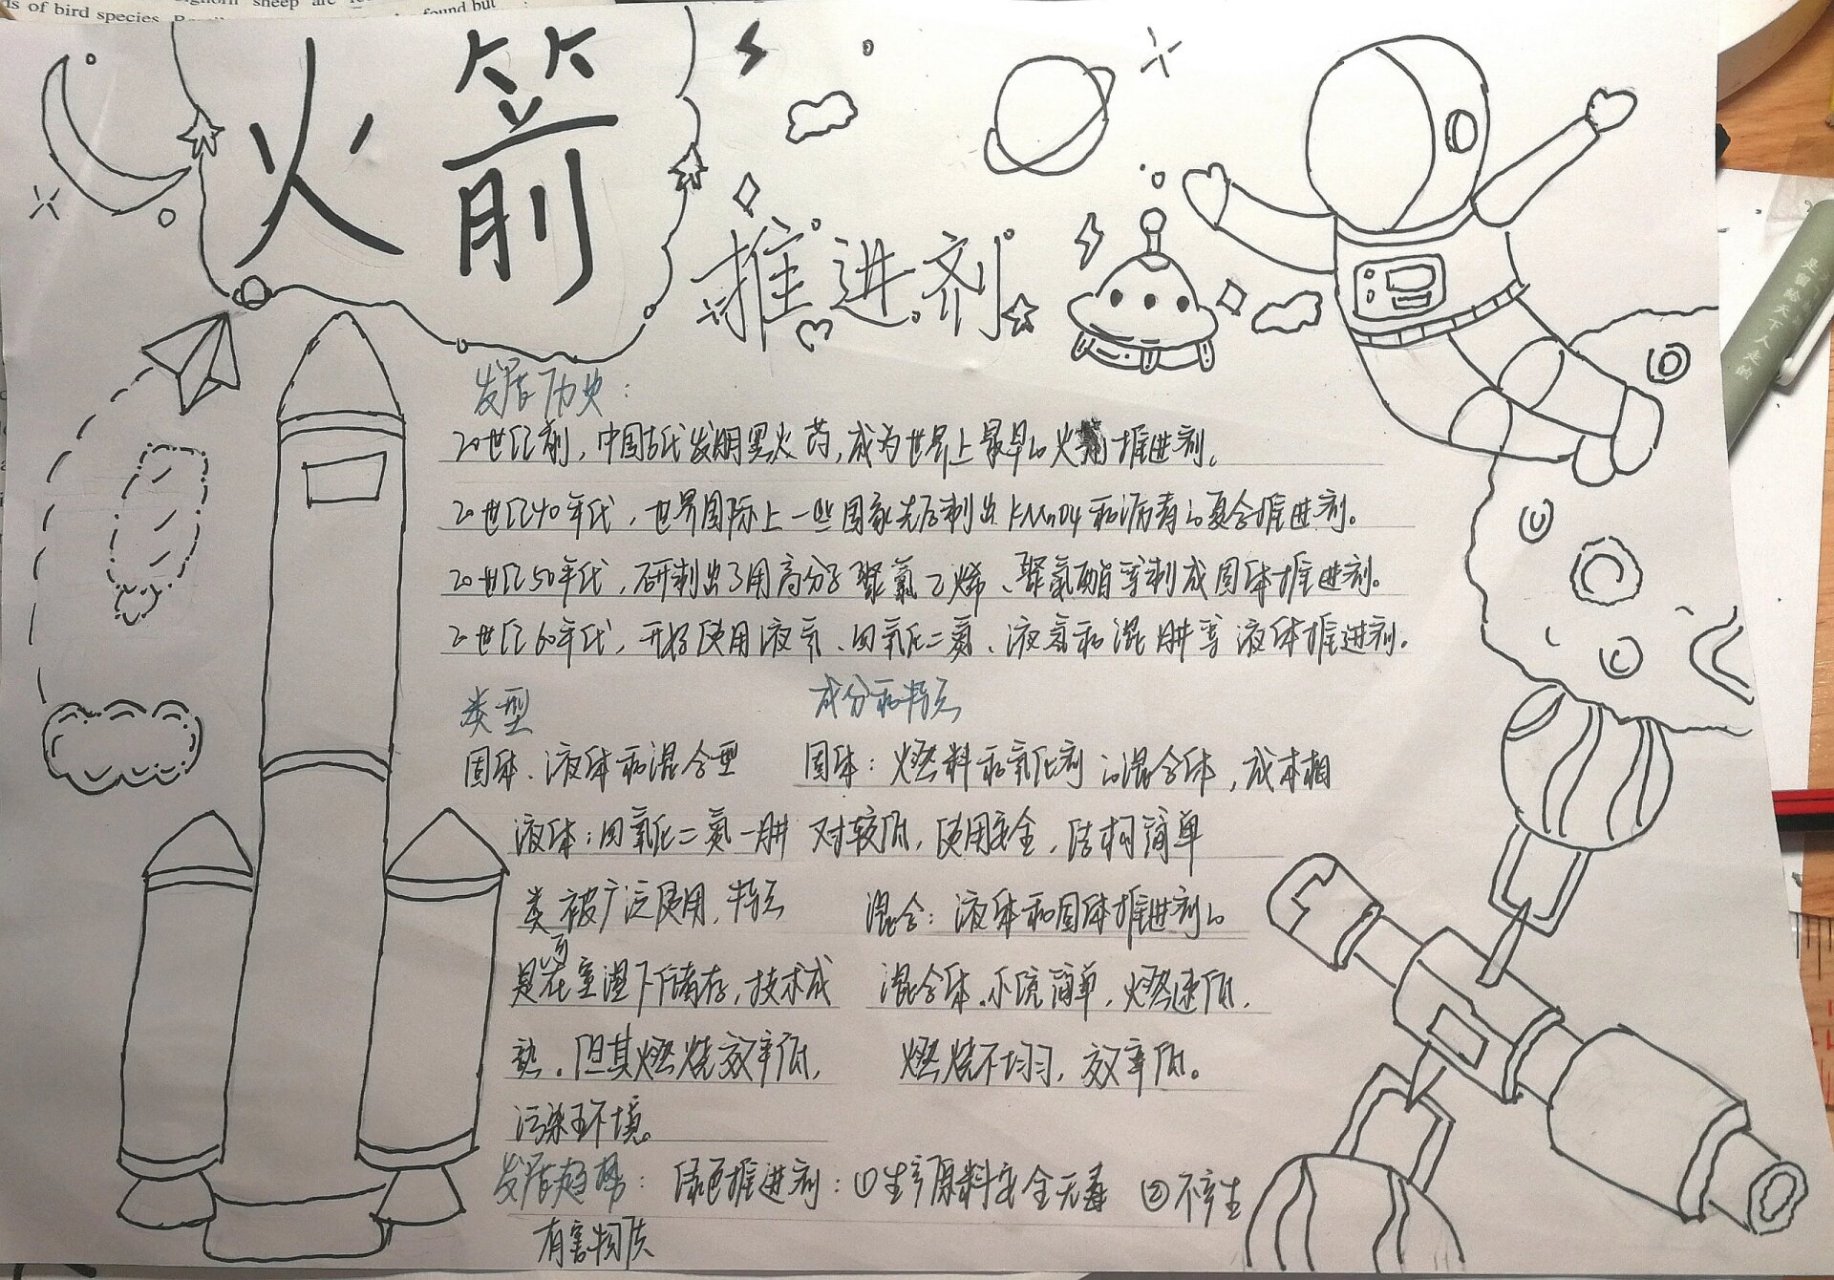 ds of bird species
sheep are
found but
火箭
推进剂
是留给天下人走的
发展历史：
20世纪前，中国古代发明黑火药，成为世界上最早的火箭推进剂。
20世纪40年代，世界国际上一些国家先后制出KMnO4和沥青的复合推进剂。
20世纪50年代，研制出了用高分子聚氯乙烯、聚氨酯等制成固体推进剂。
20世纪60年代，开始使用液氧、四氧化二氮、液氢和混肼等液体推进剂。
类型
固体、液体和混合型
液体：四氧化二氮—肼
类被广泛使用，特点
是可在室温下储存，技术成
熟。但其燃烧效率低，
污染环境。
成分和特点
固体：燃料和氧化剂的混合体，成本相
对较低，使用安全，结构简单
混合：液体和固体推进剂的
混合体。系统简单，燃速低，
燃烧不均匀，效率低。
发展趋势：绿色推进剂：①生产原料安全无毒 ②不产生
有害物质